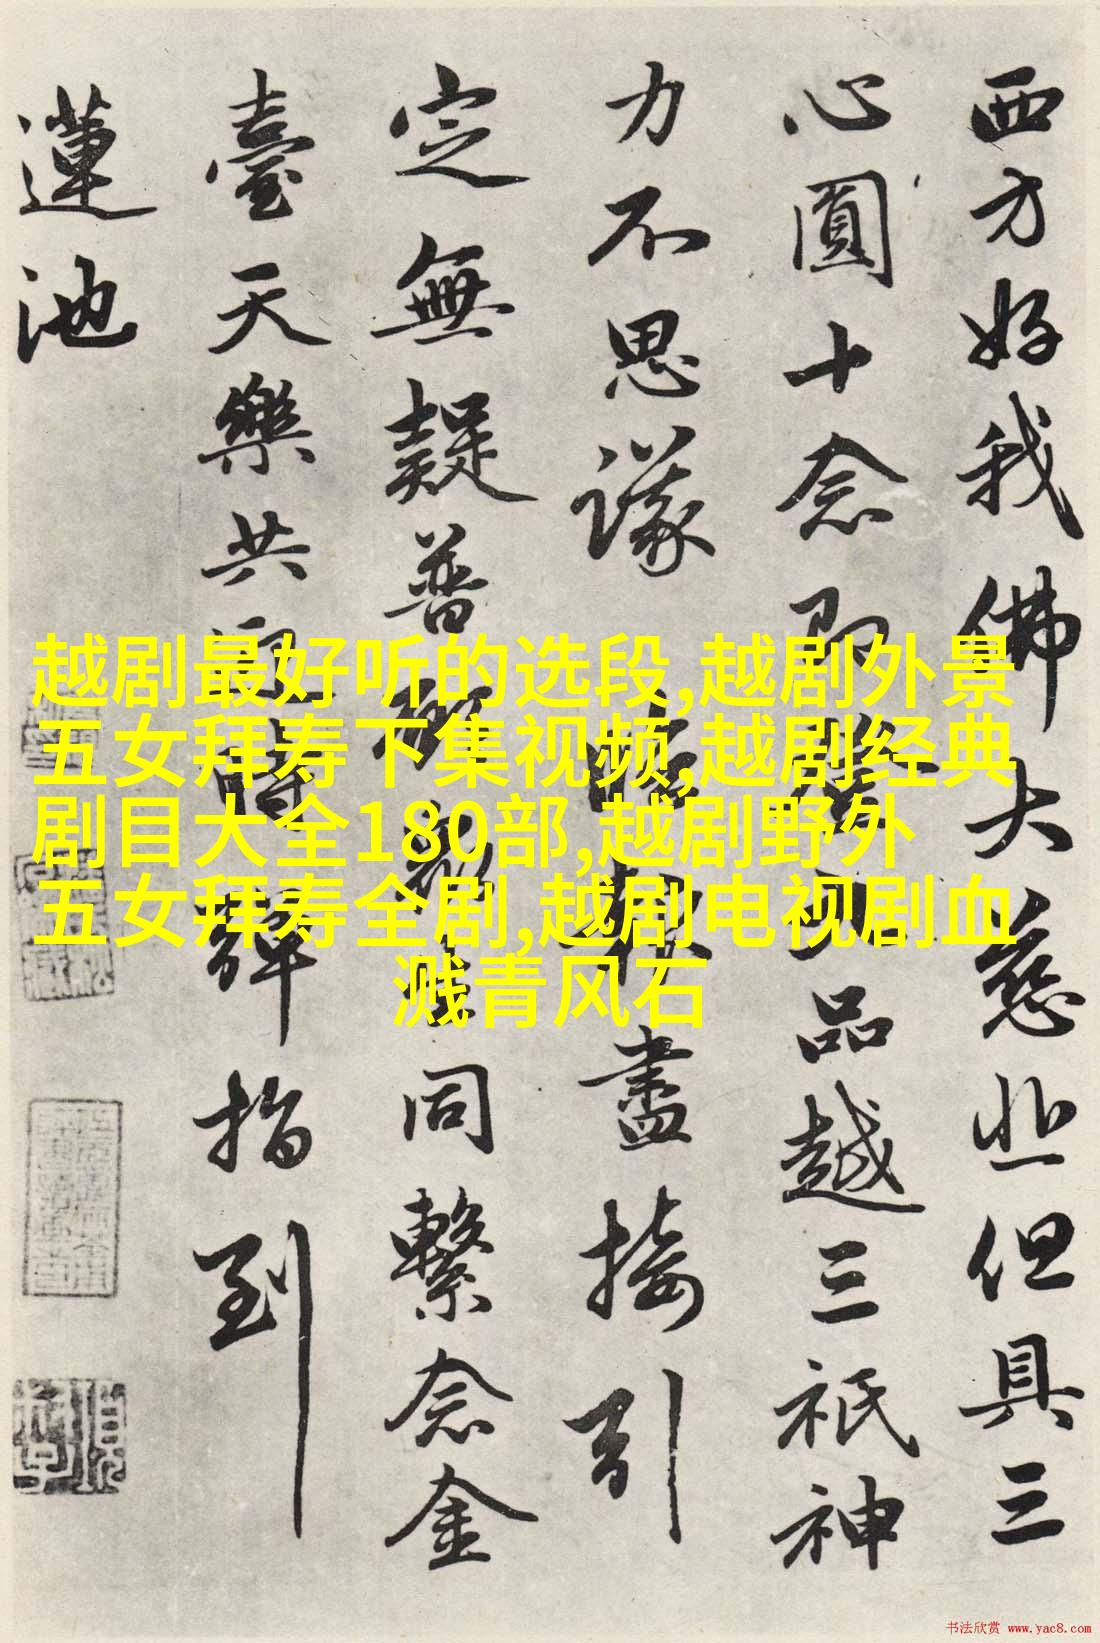 西方好我佛大慈悲但具三
心圓十念即品越三祇神
力不思議臨報盡接引
定無疑普願生同繫念金
臺天樂共時彈指到
蓮池
越剧最好听的选段,越剧外景
五女拜寿下集视频,越剧经典
剧目大全180部,越剧野外
五女拜寿全剧,越剧电视剧血
溅青风石
书法欣赏 www.yac8.com